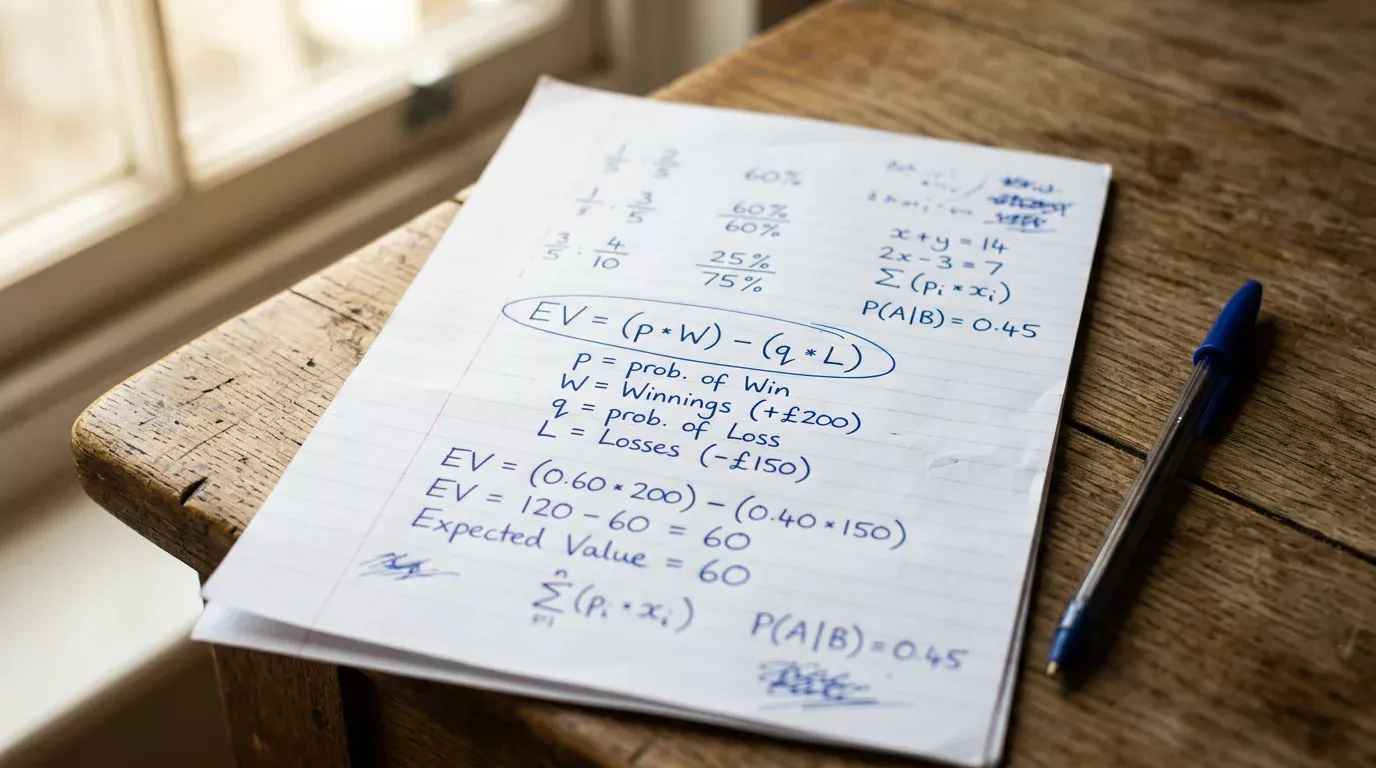 1/5 · 2/5 60%
3/5 60%/60%
3/5 : 4/10 25%/75%
x + y = 14
2x - 3 = 7
∑ (pᵢ * xᵢ)
P(A|B) = 0.45
EV = (p * W) − (q * L)
p = prob. of Win
W = Winnings (+£200)
q = prob. of Loss
L = Losses (-£150)
EV = (0.60 * 200) − (0.40 * 150)
EV = 120 − 60 = 60
Expected Value = 60
n ∑ (pᵢ * xᵢ) P(A|B) = 0.45